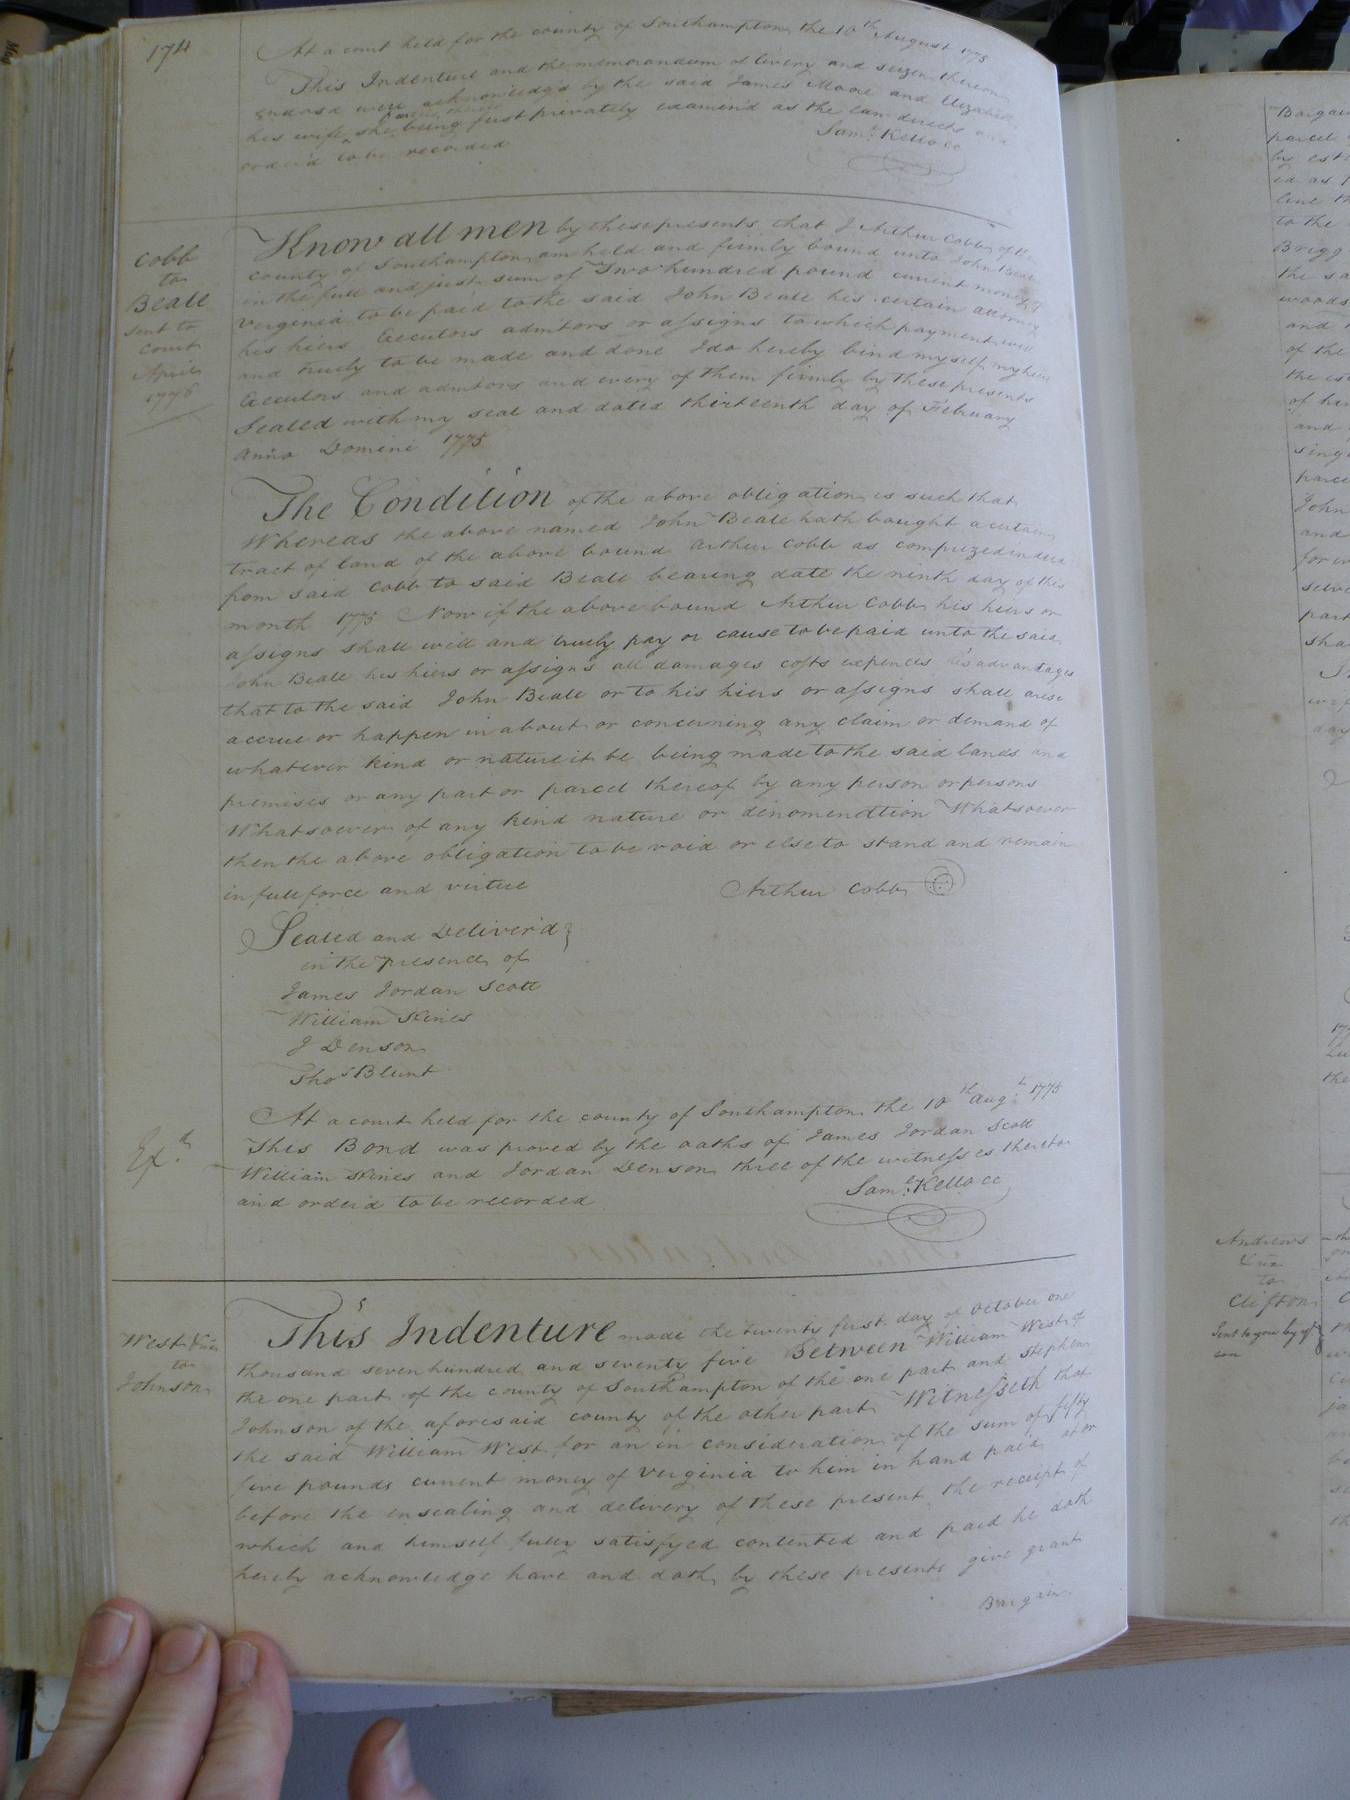 174
At a court held for the county of Southampton the 10th August 1775
This Indenture and the memorandum of livery and seizen thereon
endorsd were acknowledg'd by the said James Moore and Elizabeth
his wife she being first privately examin'd as the law directs and
order'd to be recorded
Saml. Kello cc
Cobb
to
Beale
sent to
court
April
1776
Know all men by these presents that I Arthur Cobb of the
county of Southampton am held and firmly bound unto John Beale
in the full and just sum of Two hundred pound current money of
Verginia to be paid to the said John Beale his certain attorney
his hiers Executors admitors or assigns to which payment well
and truely to be made and done I do hereby bind myself my hiers
Executors and admitors and every of them firmly by these presents
Sealed with my seal and dated thirteenth day of February
anno Domini 1775
The Condition of the above obligation is such that
Whereas the above named John Beale hath bought a certain
tract of land of the above bound Arthur Cobb as comprized in deed
from said Cobb to said Beale bearing date the ninth day of this
month 1775 Now if the above bound Arthur Cobb his hiers or
assigns shall will and truely pay or cause to be paid unto the said
John Beale his hiers or assigns all damages costs expences disadvantages
that to the said John Beale or to his hiers or assigns shall arise
accrue or happen in about or concerning any claim or demand of
whatever kind or nature it be being made to the said lands and
premises or any part or parcel thereof by any person or persons
Whatsoever of any kind nature or dinomendtion Whatsoever
then the above obligation to be void or else to stand and remain
in full force and virtue
Arthur Cobb
Sealed and Deliver'd
in the presence of
James Jordan Scott
William Kines
J Denson
Thos Blunt
Exd.
At a court held for the county of Southampton the 10th Augt. 1775
This Bond was proved by the oaths of James Jordan Scott
William Kines and Jordan Denson three of the witnesses thereto
and order'd to be recorded
Saml. Kello cc
West
to
Johnson
This Indenture made the twenty first day of October one
thousand seven hundred and seventy five Between William West of
the one part of the county of Southampton of the one part and Stephen
Johnson of the aforesaid county of the other part Witnesseth that
the said William West for an in consideration of the sum of fifty
five pounds current money of Verginia to him in hand paid at or
before the ensealing and delivery of these present the receipt of
which and himself fully satisfyed contented and paid he doth
hereby acknowledge have and doth by these presents give grant
Bargain
Bargain
parcel
by
ed as
line
to the
Brigg
the sa
woods
and
of the
the
of
and
parce
John
and
part
sha
day
the
Andrews
to
Clifton
Sent to you by yr
son